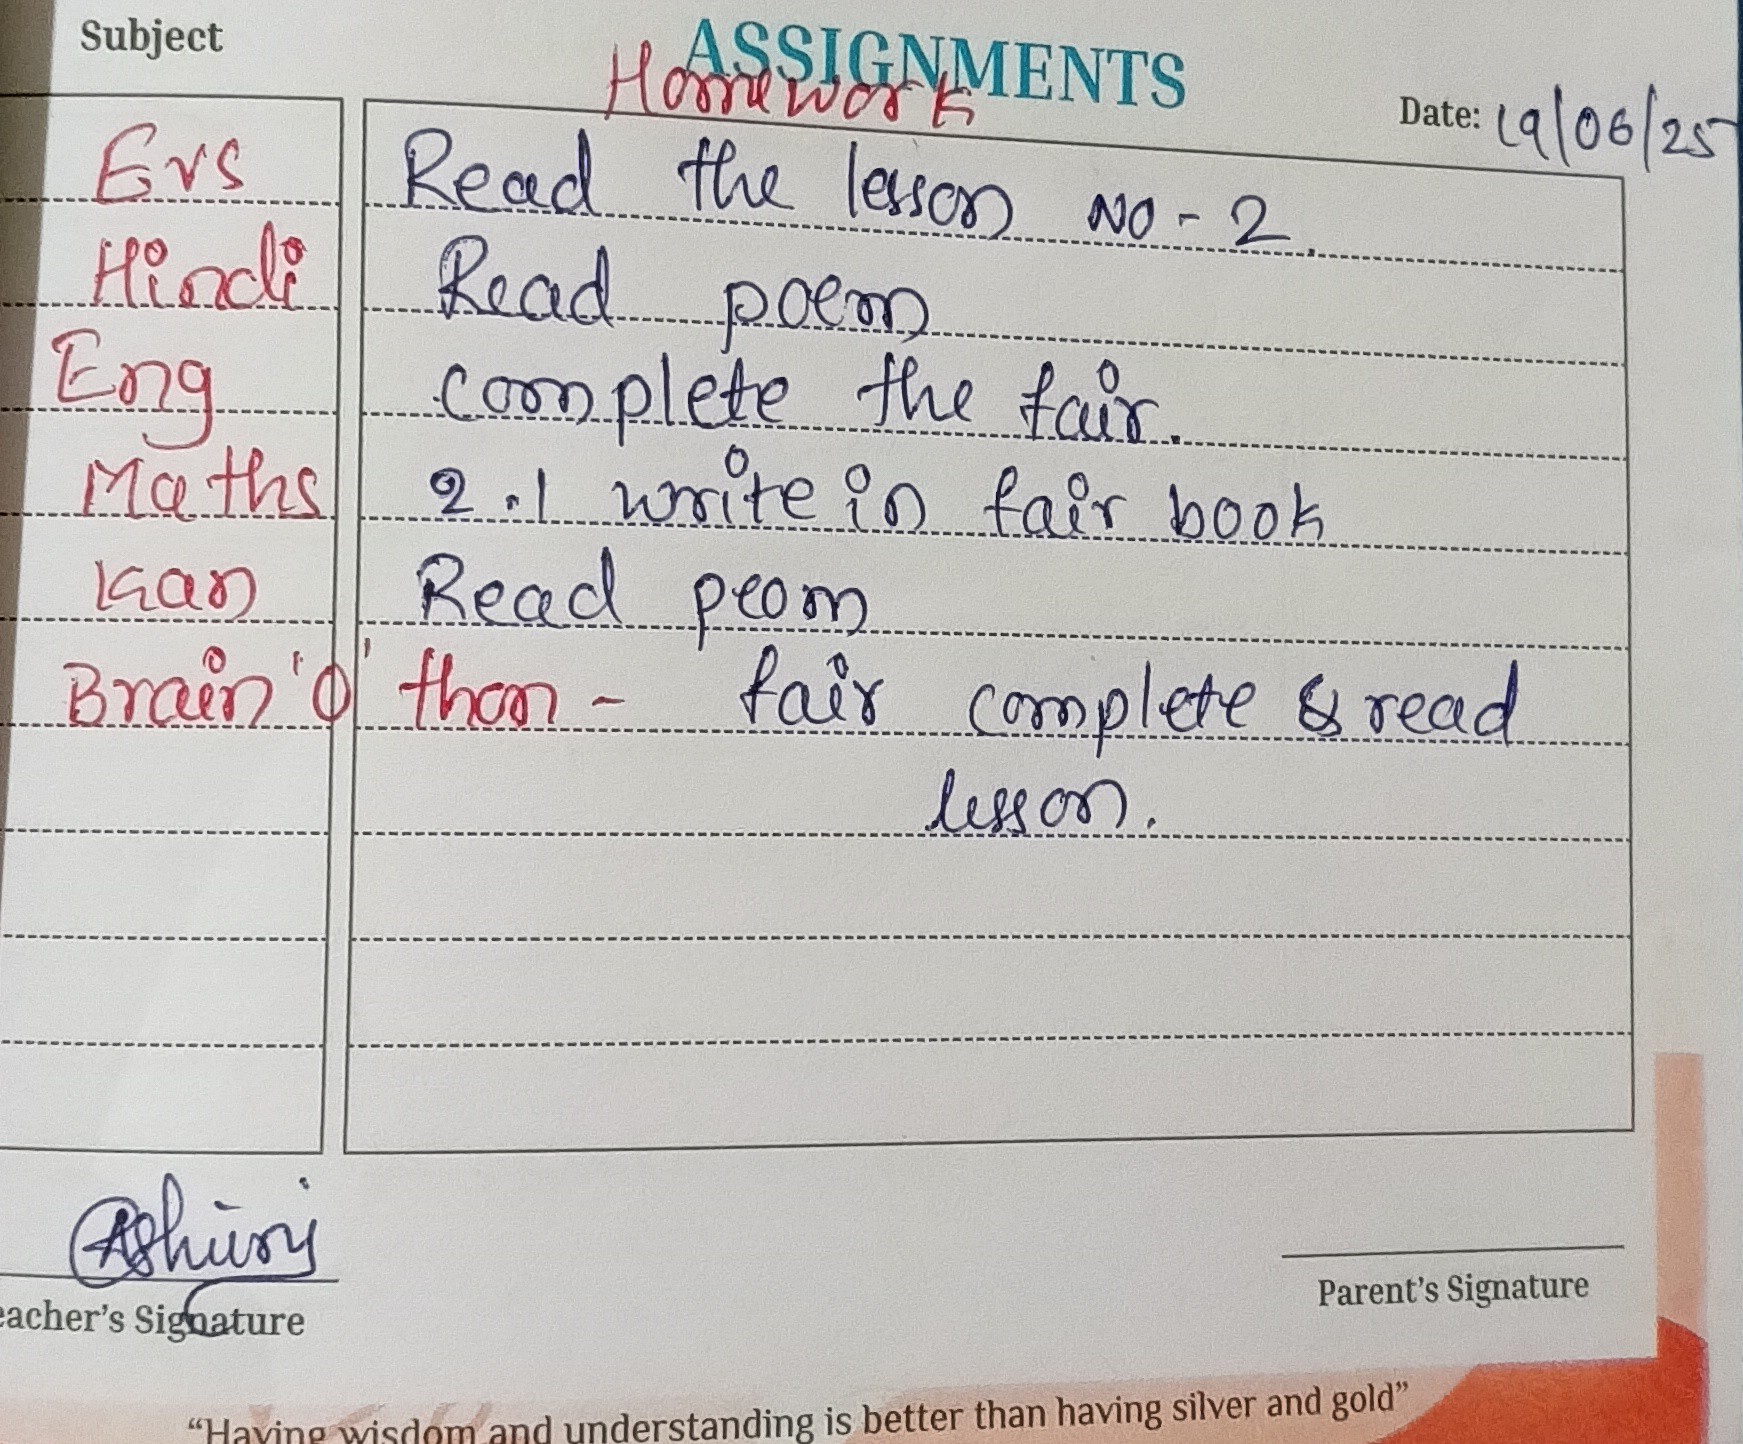 Subject
ASSIGNMENTS
Homework
Date: 19/06/25
Evs Read the lesson NO - 2.
Hindi Read poem
Eng complete the fair.
Maths 2.1 write in fair book
Kan Read peom
Brain 'O' thon - fair complete & read
lesson.
eacher's Signature
Parent's Signature
“Having wisdom and understanding is better than having silver and gold”